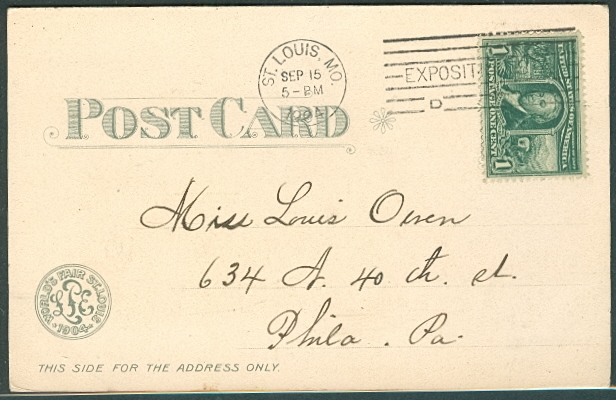 ST. LOUIS, MO.
SEP 15
5-PM
1904
EXPOSIT
D
UNITED STATES OF AMERICA
1
POSTAGE ONE CENT
1
POST CARD
Miss Louis Owen
634 N. 40 th. st.
Phila. Pa.
WORLD'S FAIR ST. LOUIS
LPE
1904
THIS SIDE FOR THE ADDRESS ONLY.